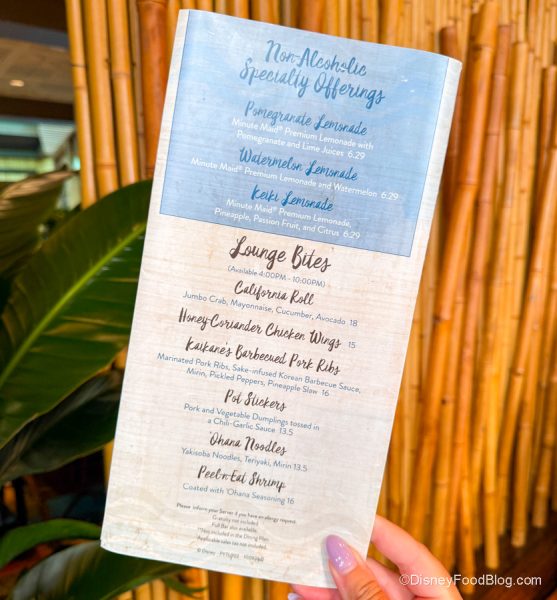 Non-Alcoholic
Specialty Offerings
Pomegranate Lemonade
Minute Maid® Premium Lemonade with
Pomegranate and Lime Juices 6.29
Watermelon Lemonade
Minute Maid® Premium Lemonade and Watermelon 6.29
Keiki Lemonade
Minute Maid® Premium Lemonade,
Pineapple, Passion Fruit, and Citrus 6.29
Lounge Bites
(Available 4:00PM - 10:00PM)
California Roll
Jumbo Crab, Mayonnaise, Cucumber, Avocado 18
Honey-Coriander Chicken Wings 15
Kaikane's Barbecued Pork Ribs
Marinated Pork Ribs, Sake-infused Korean Barbecue Sauce,
Mirin, Pickled Peppers, Pineapple Slaw 16
Pot Stickers
Pork and Vegetable Dumplings tossed in
a Chili-Garlic Sauce 13.5
Ohana Noodles
Yakisoba Noodles, Teriyaki, Mirin 13.5
Peel-n-Eat Shrimp
Coated with 'Ohana Seasoning 16
Please inform your Server if you have an allergy request.
Gratuity not included.
Full Bar also available.
*Not included in the Dining Plan.
*Applicable sales tax not included.
© Disney
©DisneyFoodBlog.com